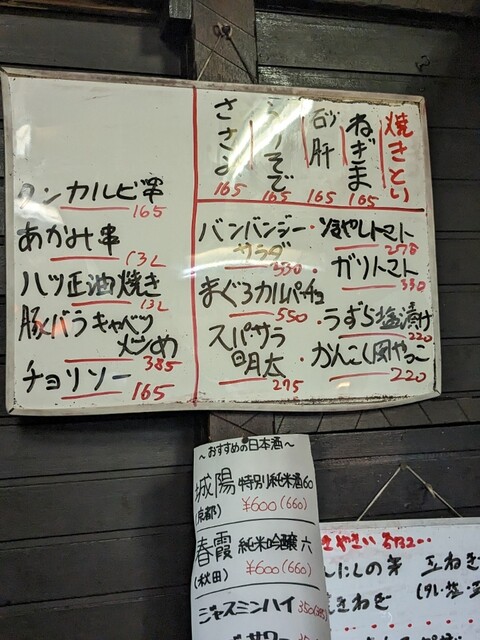 焼きとり
ねぎま
165
砂肝
165
165
ささみ
165
冷やしトマト
275
ガリトマト
330
うずら塩漬け
220
かんこく風やっこ
220
バンバンジー
サラダ
330
まぐろカルパッチョ
550
スパサラ
明太
275
タンカルビ串
165
あかみ串
132
ハツ正油焼き
132
豚バラキャベツ
炒め
385
チョリソー
165
〜おすすめの日本酒〜
城陽 特別純米酒60
(京都) ¥600(660)
春霞 純米吟醸 六
(秋田) ¥600(660)
ジャスミンハイ 350(385)